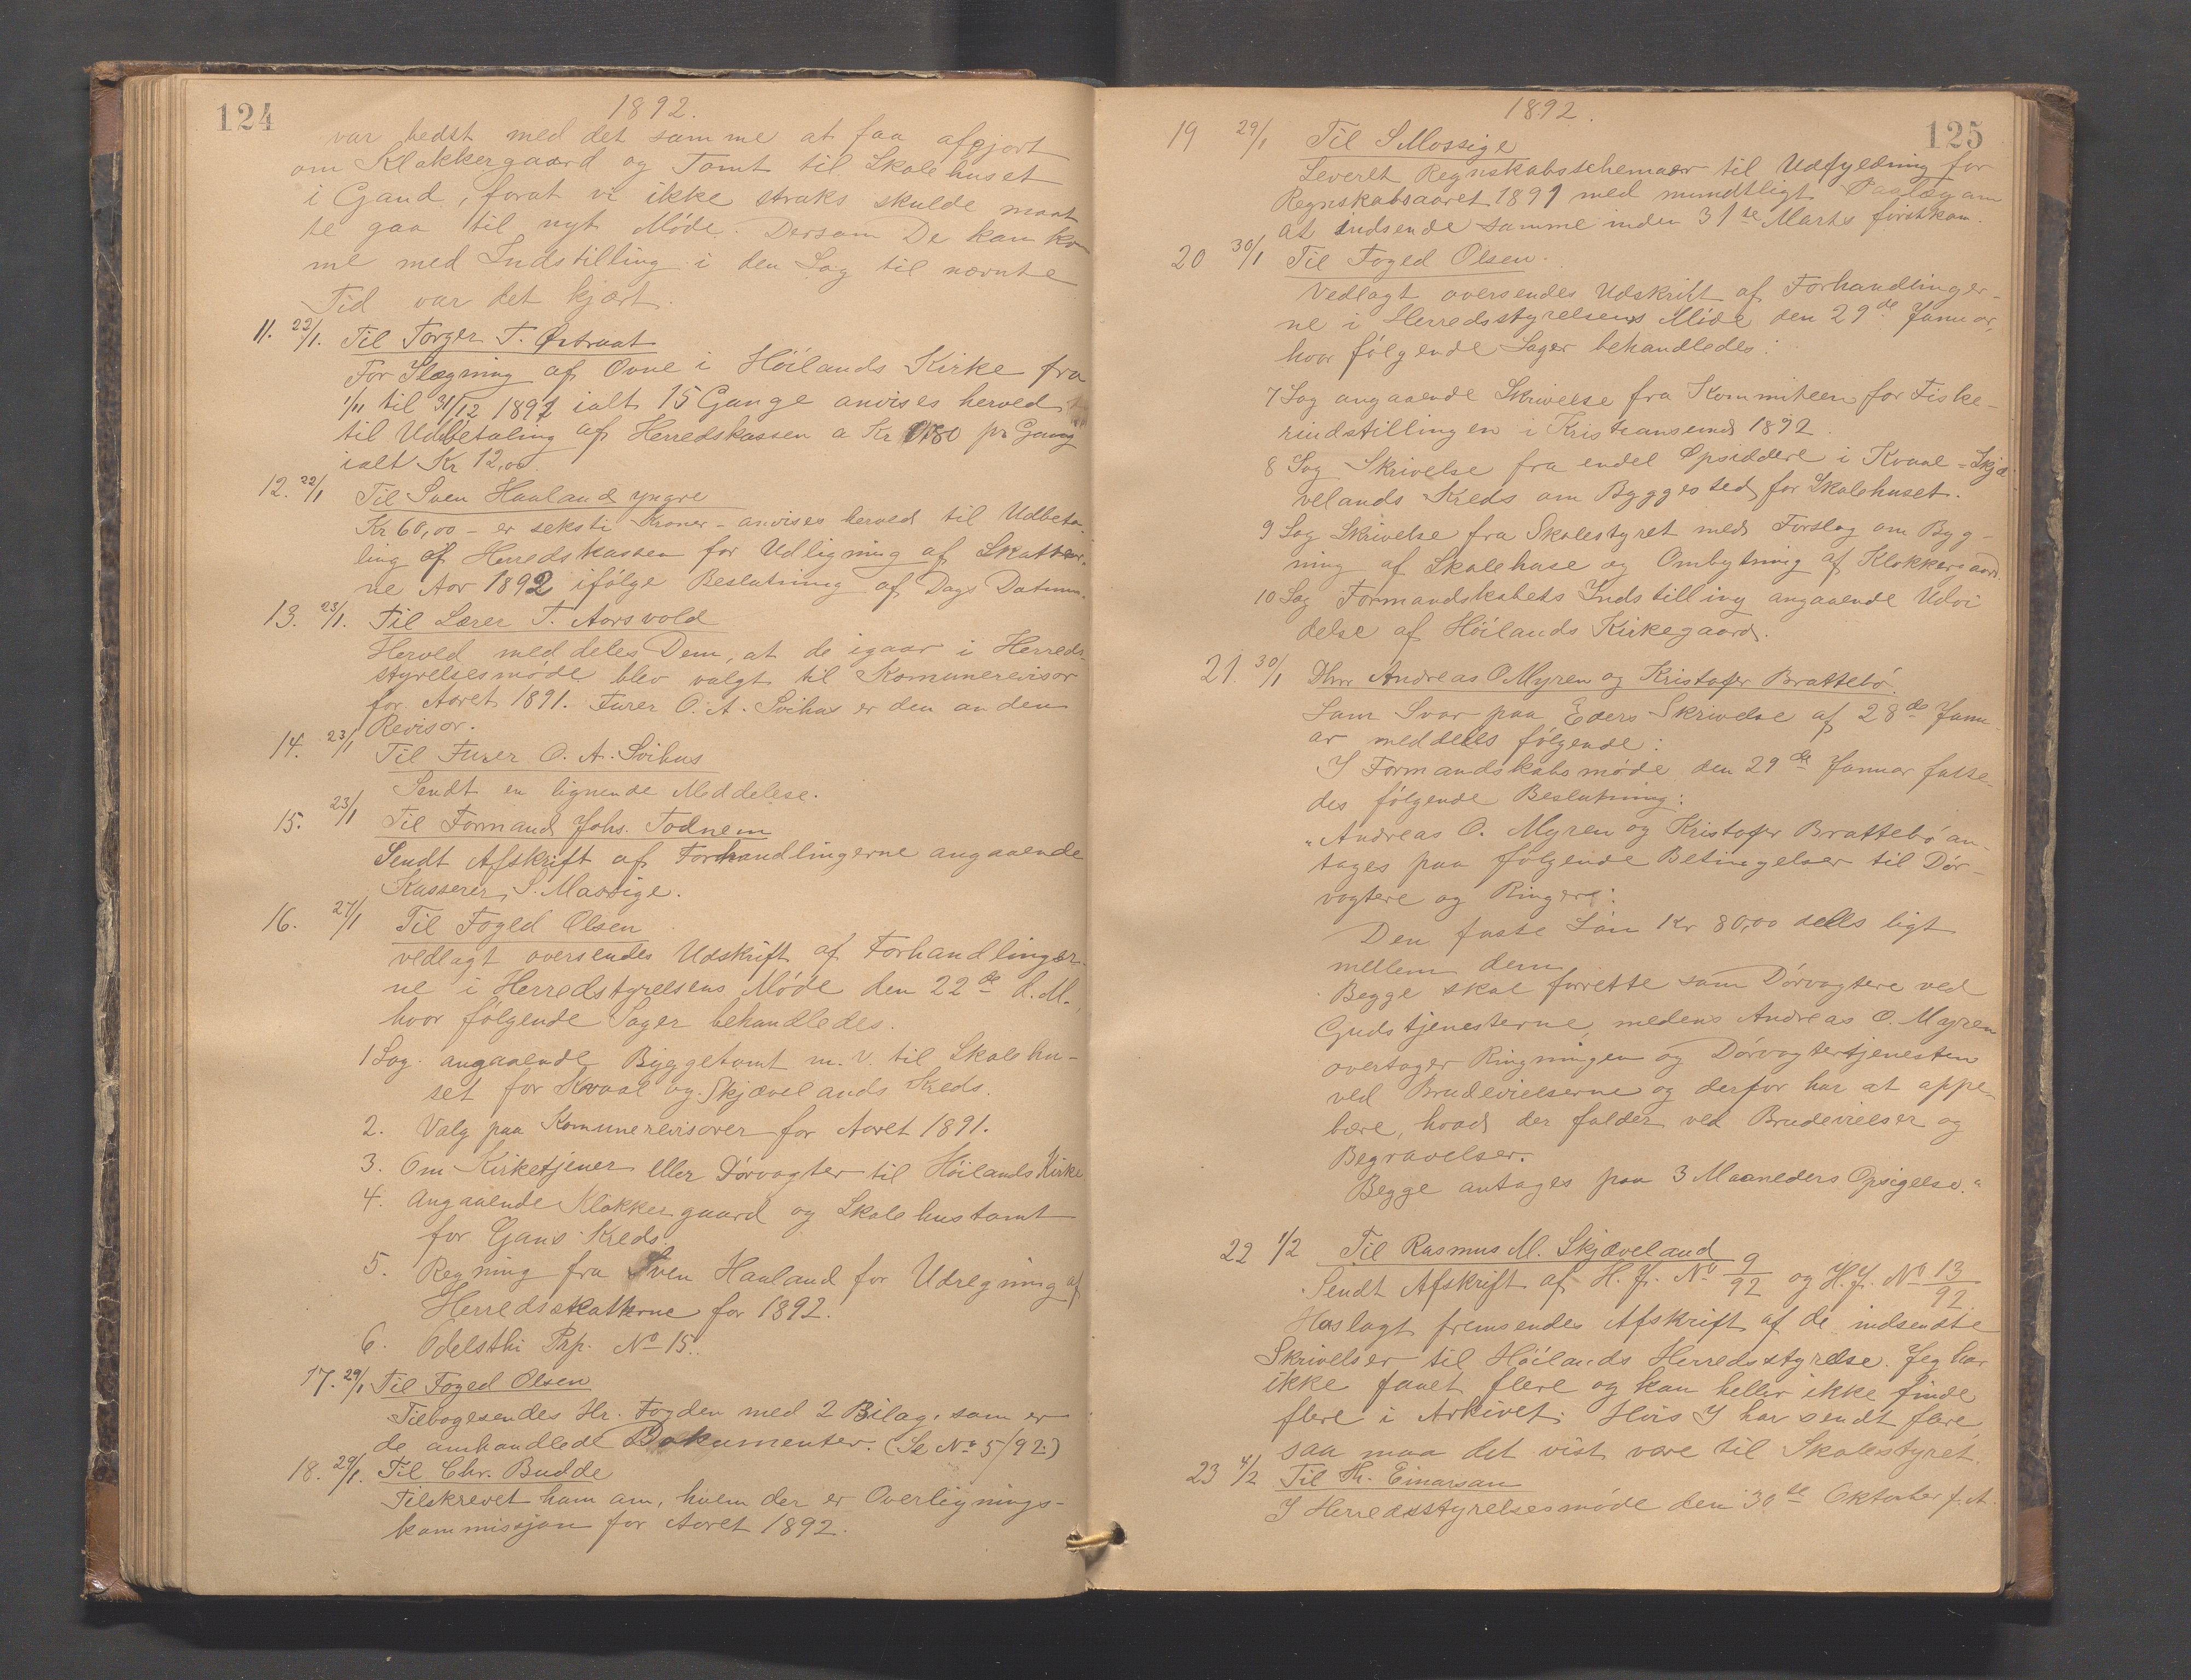 124
1892.
var bedst med det samme at faa afgjort
om Klokkergaard og Tomt til Skolehuset
i Gand, forat vi ikke straks skulde maat
te gaa til nyt Møde. Dersom De kan kom
me med Indstilling i den Sag til nævnte
Tid var det kjært.
11. 22/1. Til Torger T. Østraat
For Ilægning af Ovne i Höilands Kirke fra
1/11 til 31/12 1891 ialt 15 Gange anvises herved
til Udbetaling af Herredskassen a Kr 0,80 pr Gang
ialt Kr 12,00.
12. 22/1 Til Sven Haaland yngre
Kr 60,00 - er seksti Kroner - anvises herved til Udbeta-
ling af Herredskassen for Udligning af Skatter-
ne Aar 1892 ifölge Beslutning af Dags Datum.
13. 23/1. Til Lærer T. Aarsvold
Herved meddeles Dem, at de igaar i Herreds-
styrelsesmöde blev valgt til Komunerevisor
for Aaret 1891. Furer O. A. Svihus er den anden
Revisor.
14. 23/1 Til Furer O. A. Svihus
Sendt en lignende Meddelese.
15. 23/1 Til Formand Johs. Todnem
Sendt Afskrift af Forhandlingerne angaaende
Kasserer S. Mossige.
16. 27/1 Til Foged Olsen
vedlagt oversendes Udskrift af Forhandlinger-
ne i Herredstyrelsens Möde den 22de d. M.,
hvor fölgende Sager behandledes.
1 Sag. angaaende Byggetomt m. v. til Skolehu-
set for Kvaal og Skjævelands Kreds.
2. Valg paa Komunerevisorer for Aaret 1891.
3. Om Kirketjener eller Dörvogter til Höilands Kirke
4. Angaaende Klokkergaard og Skolehustomt
for Gans Kreds.
5. Regning fra Sven Haaland for Udregning af
Herredsskatterne for 1892.
6. Odelsthi Prp. No 15.
17. 29/1 Til Foged Olsen
Tilbagesendes Hr. Fogden med 2 Bilag, som er
de omhandlede Dokumenter. (Se No 5/92.)
18. 29/1. Til Chr. Budde
Tilskrevet ham om, hvem der er Overlignings-
kommissjon for Aaret 1892.
125
1892.
19 29/1 Til S Mossige
Leveret Regnskabsschemaer til Udfyldning for
Regnskabsaaret 1891 med mundtligt Paalæg om
at indsende samme inden 31te Marts førstkom.
20 30/1 Til Foged Olsen.
Vedlagt oversendes Udskrift af Forhandlinger-
ne i Herredsstyrelsens Möde den 29de Januar,
hvor fölgende Sager behandledes:
7 Sag angaaende Skrivelse fra Kommiteen for Fiske-
riudstillingen i Kristiansund 1892.
8 Sag Skrivelse fra endel Opsiddere i Kvaal-Skjæ
velands Kreds om Byggested for Skolehuset.
9 Sag Skrivelse fra Skolestyret med Forslag om Byg-
ning af Skolehuse og Ombytning af Klokkergaard.
10 Sag Formandskabets Indstilling angaaende Udvi
delse af Höilands Kirkegaard.
21. 30/1 Dhrr Andreas O Myren og Kristofer Brattebö.
Som Svar paa Eders Skrivelse af 28de Janu-
ar meddeles fölgende:
I Formandskabsmöde den 29de Januar fatte-
des fölgende Beslutning:
"Andreas O. Myren og Kristofer Brattebö an-
tages paa fölgende Betingelser til Dör-
vogtere og Ringere:
Den faste Lön Kr 80,00 deles ligt
mellem dem.
Begge skal forrette som Dörvogtere ved
Gudstjenesterne, medens Andreas O. Myren
overtager Ringningen og Dörvogtertjenesten
ved Brudevielserne og derfor har at oppe-
bære, hvad der falder ved Brudevielser og
Begravelser.
Begge antages paa 3 Maaneders Opsigelse."
22 1/2 Til Rasmus M. Skjæveland
Sendt Afskrift af H. J. No 9/92 og H. J. No 13/92.
Hoslagt fremsendes Afskrift af de indsendte
Skrivelser til Höilands Herredsstyrelse. Jeg har
ikke faaet flere og kan heller ikke finde
flere i Arkivet. Hvis I har sendt flere,
saa maa det vist være til Skolestyret.
23 4/2 Til Th. Einarsan
I Herredsstyrelsesmöde den 30te Oktober f. A.